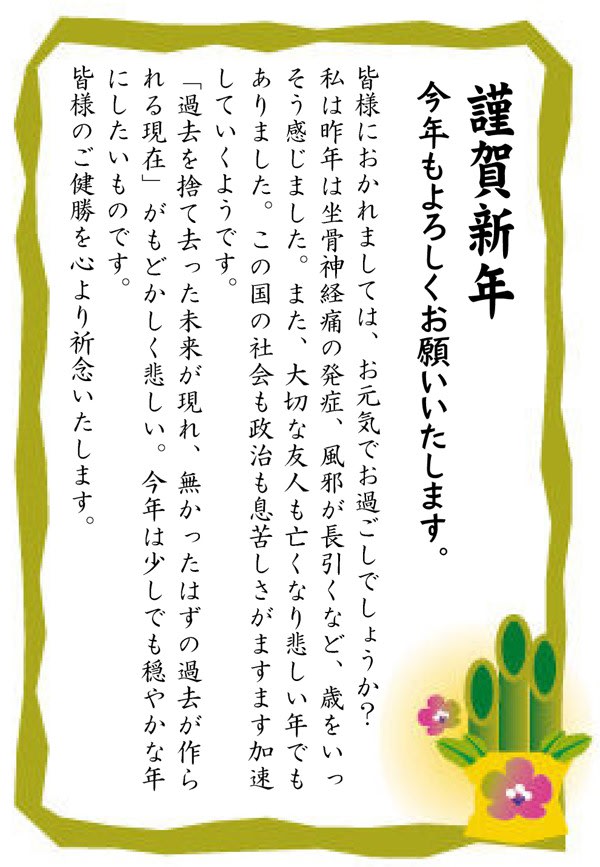 謹賀新年
今年もよろしくお願いいたします。
皆様におかれましては、お元気でお過ごしでしょうか？
私は昨年は坐骨神経痛の発症、風邪が長引くなど、歳をいっ
そう感じました。また、大切な友人も亡くなり悲しい年でも
ありました。この国の社会も政治も息苦しさがますます加速
していくようです。
「過去を捨て去った未来が現れ、無かったはずの過去が作ら
れる現在」がもどかしく悲しい。今年は少しでも穏やかな年
にしたいものです。
皆様のご健勝を心より祈念いたします。